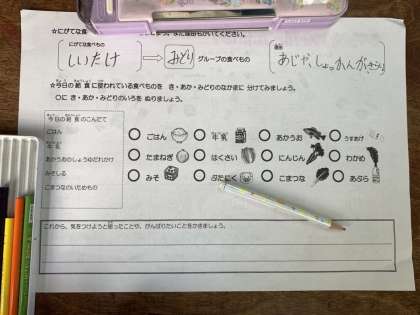 ☆にがてな食
にがてな食べもの
しいたけ
みどり
グループの食べもの
理由
あじや、しょっかんが、きらい
☆今日の給食に使われている食べものを き・あか・みどりのなかまに 分けてみましょう。
○に き・あか・みどりのいろを ぬりましょう。
今日の給食のこんだて
ごはん
牛乳
あかうおのしょうゆだれかけ
みそしる
こまつなのいためもの
ごはん 牛乳 あかうお うすあげ
たまねぎ はくさい にんじん わかめ
みそ ぶたにく こまつな あぶら
これから、気をつけようと思ったことや、がんばりたいことをかきましょう。